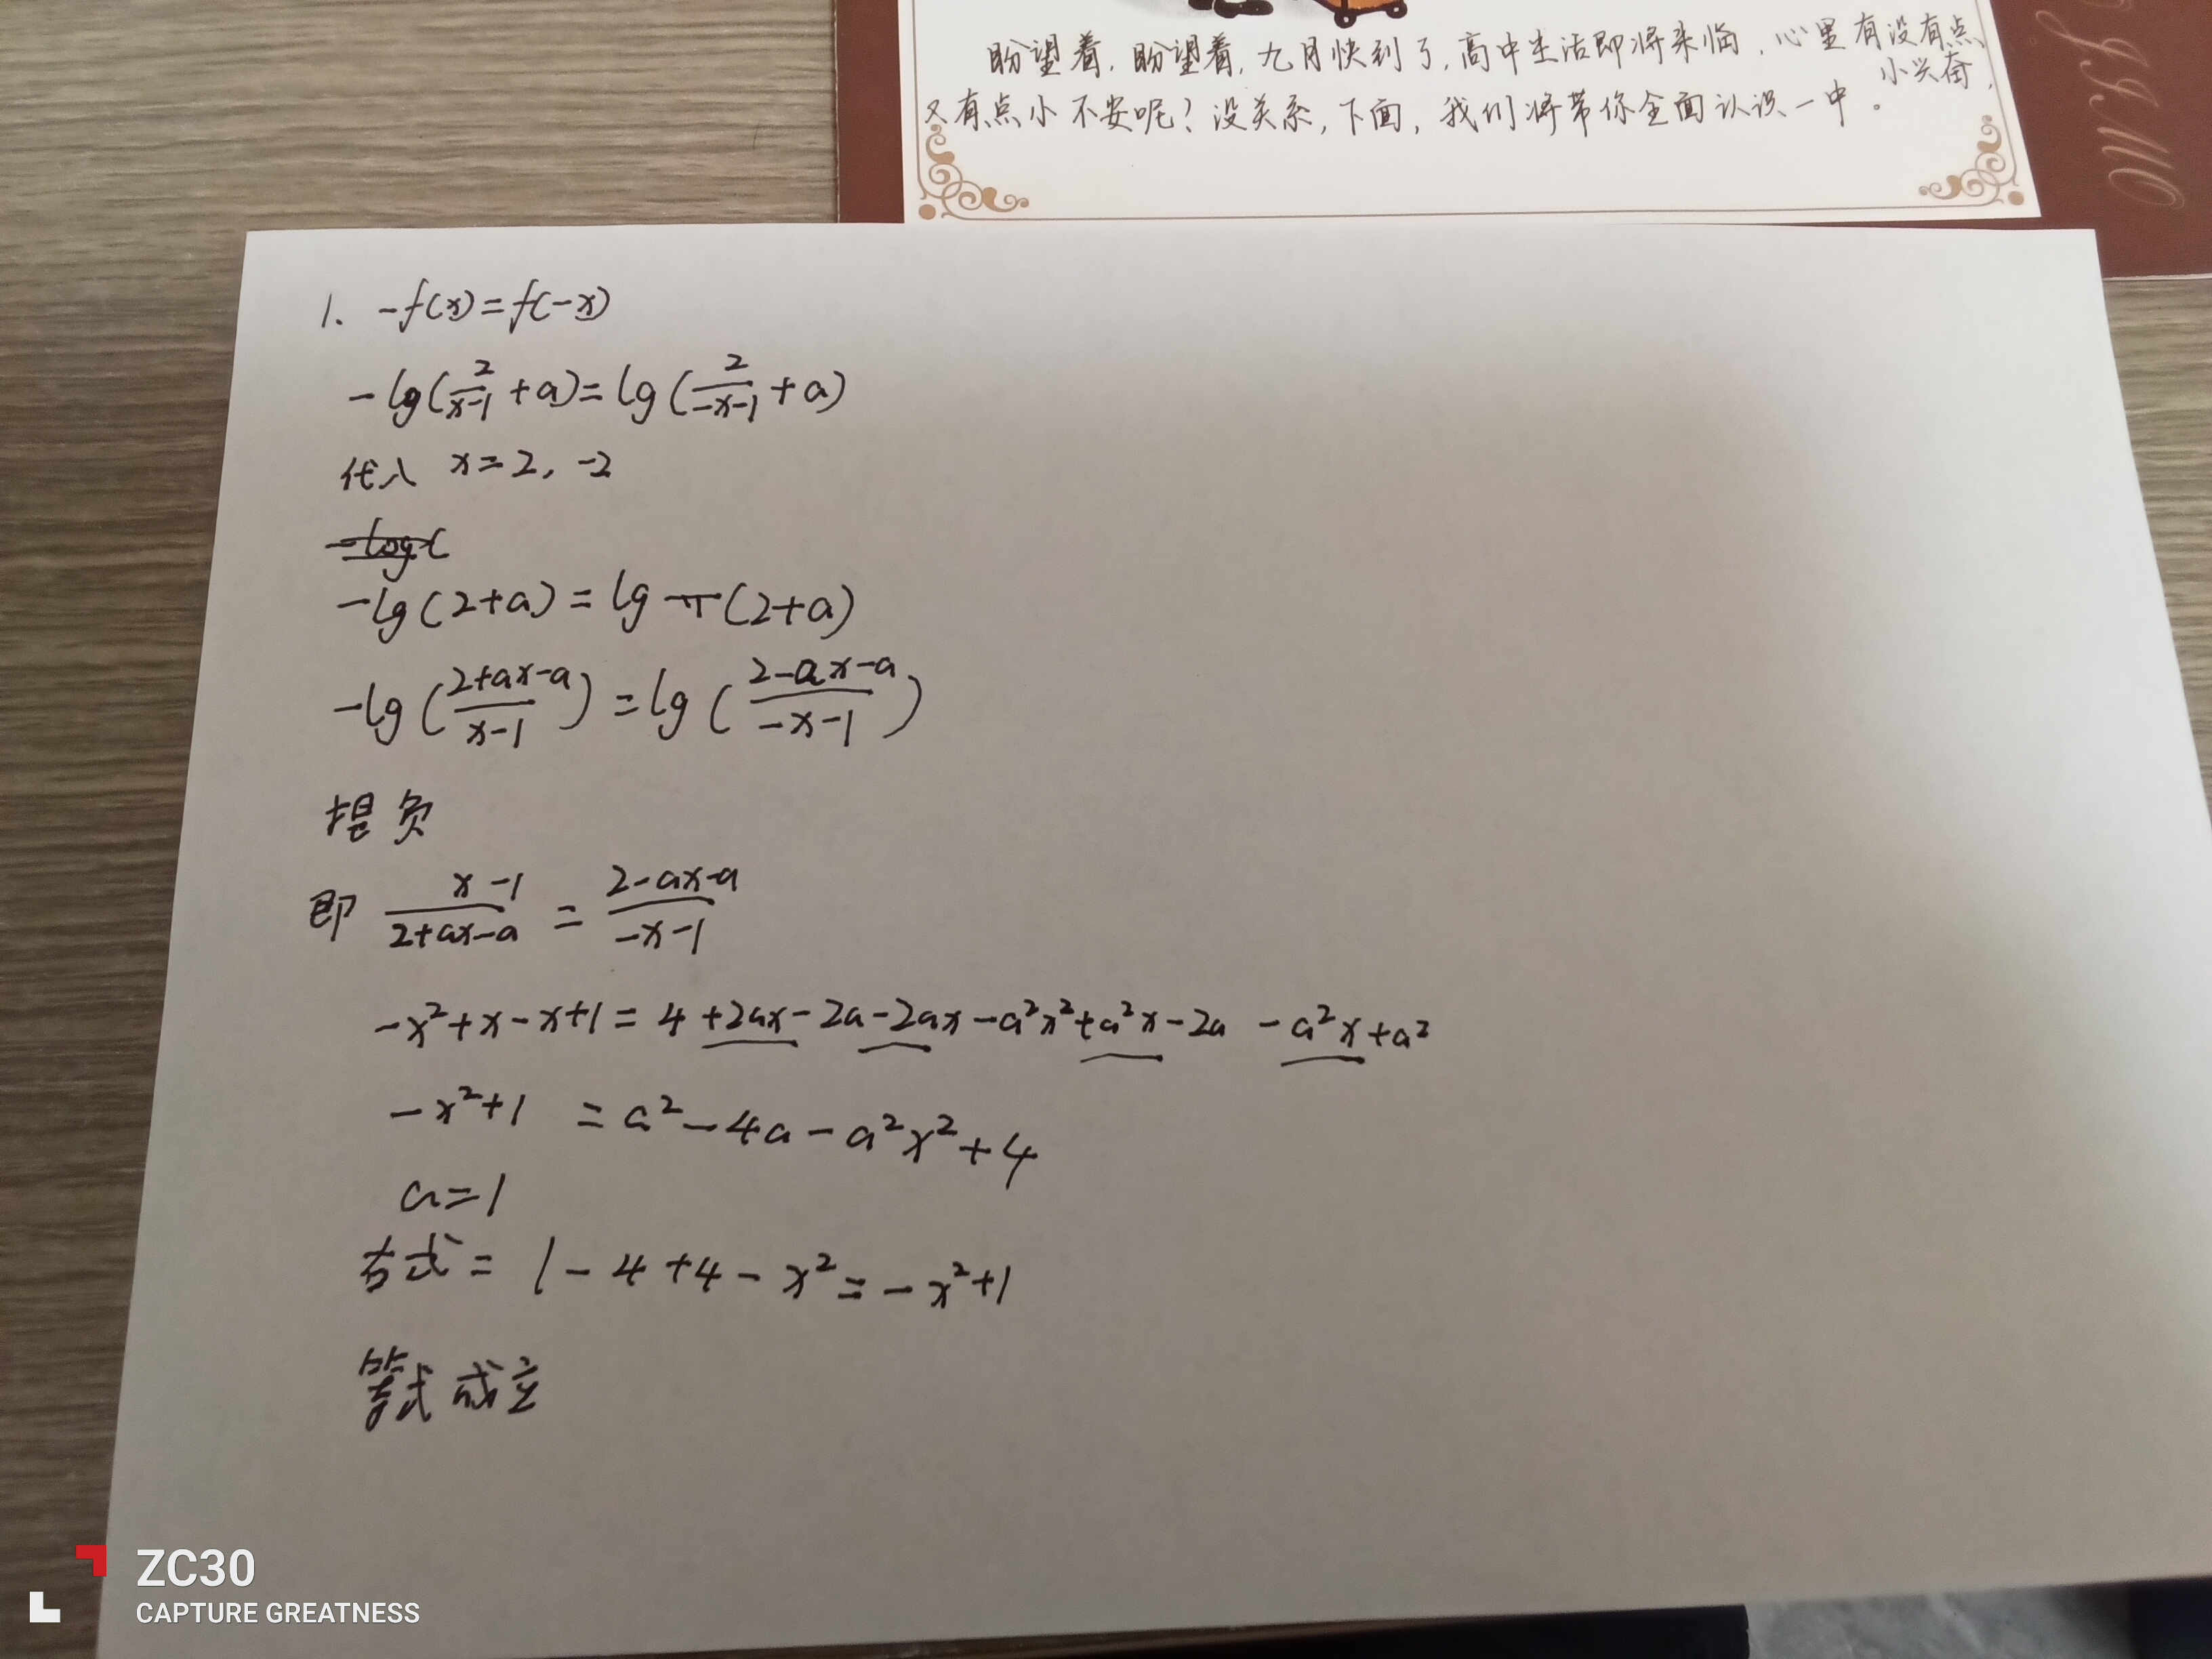 盼望着，盼望着，九月快到了，高中生活即将来临，心里有没有点小兴奋，
又有点小不安呢？没关系，下面，我们将带你全面认识一中。
1. -f(x)=f(-x)
-lg(2/(x-1)+a)=lg(2/(-x-1)+a)
代入 x=2, -2
-log(
-lg(2+a)=lg (2+a)
-lg((2+ax-a)/(x-1))=lg((2-ax-a)/(-x-1))
提负
即 (x-1)/(2+ax-a) = (2-ax-a)/(-x-1)
-x²+x-x+1=4+2ax-2a-2ax-a²x²+a²x-2a-a²x+a²
-x²+1 =a²-4a-a²x²+4
a=1
右式=1-4+4-x²=-x²+1
等式成立
ZC30
CAPTURE GREATNESS